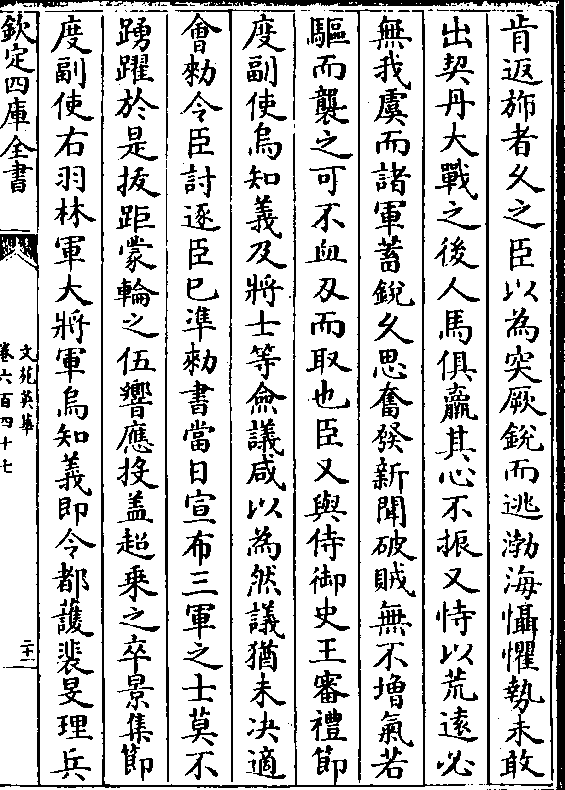 肯返斾者久之臣以為突厥鋭而逃渤海懾懼勢未敢
出契丹大戰之後人馬俱羸其心不振又恃以荒逺必
無我虞而諸軍蓄鋭久思奮發新聞破賊無不增氣若
驅而襲之可不血刃而取也臣又與侍御史王審禮節
度副使烏知義及將士等僉議咸以為然議猶未决適
㑹勅令臣討逐臣已準勅書當日宣布三軍之士莫不
踴躍於是拔距蒙輪之伍響應投盖超乗之卒景集節
度副使右羽林軍大將軍烏知義即令都護裴旻理兵
欽定四庫全書
文苑英華
卷六百四十七
二十二